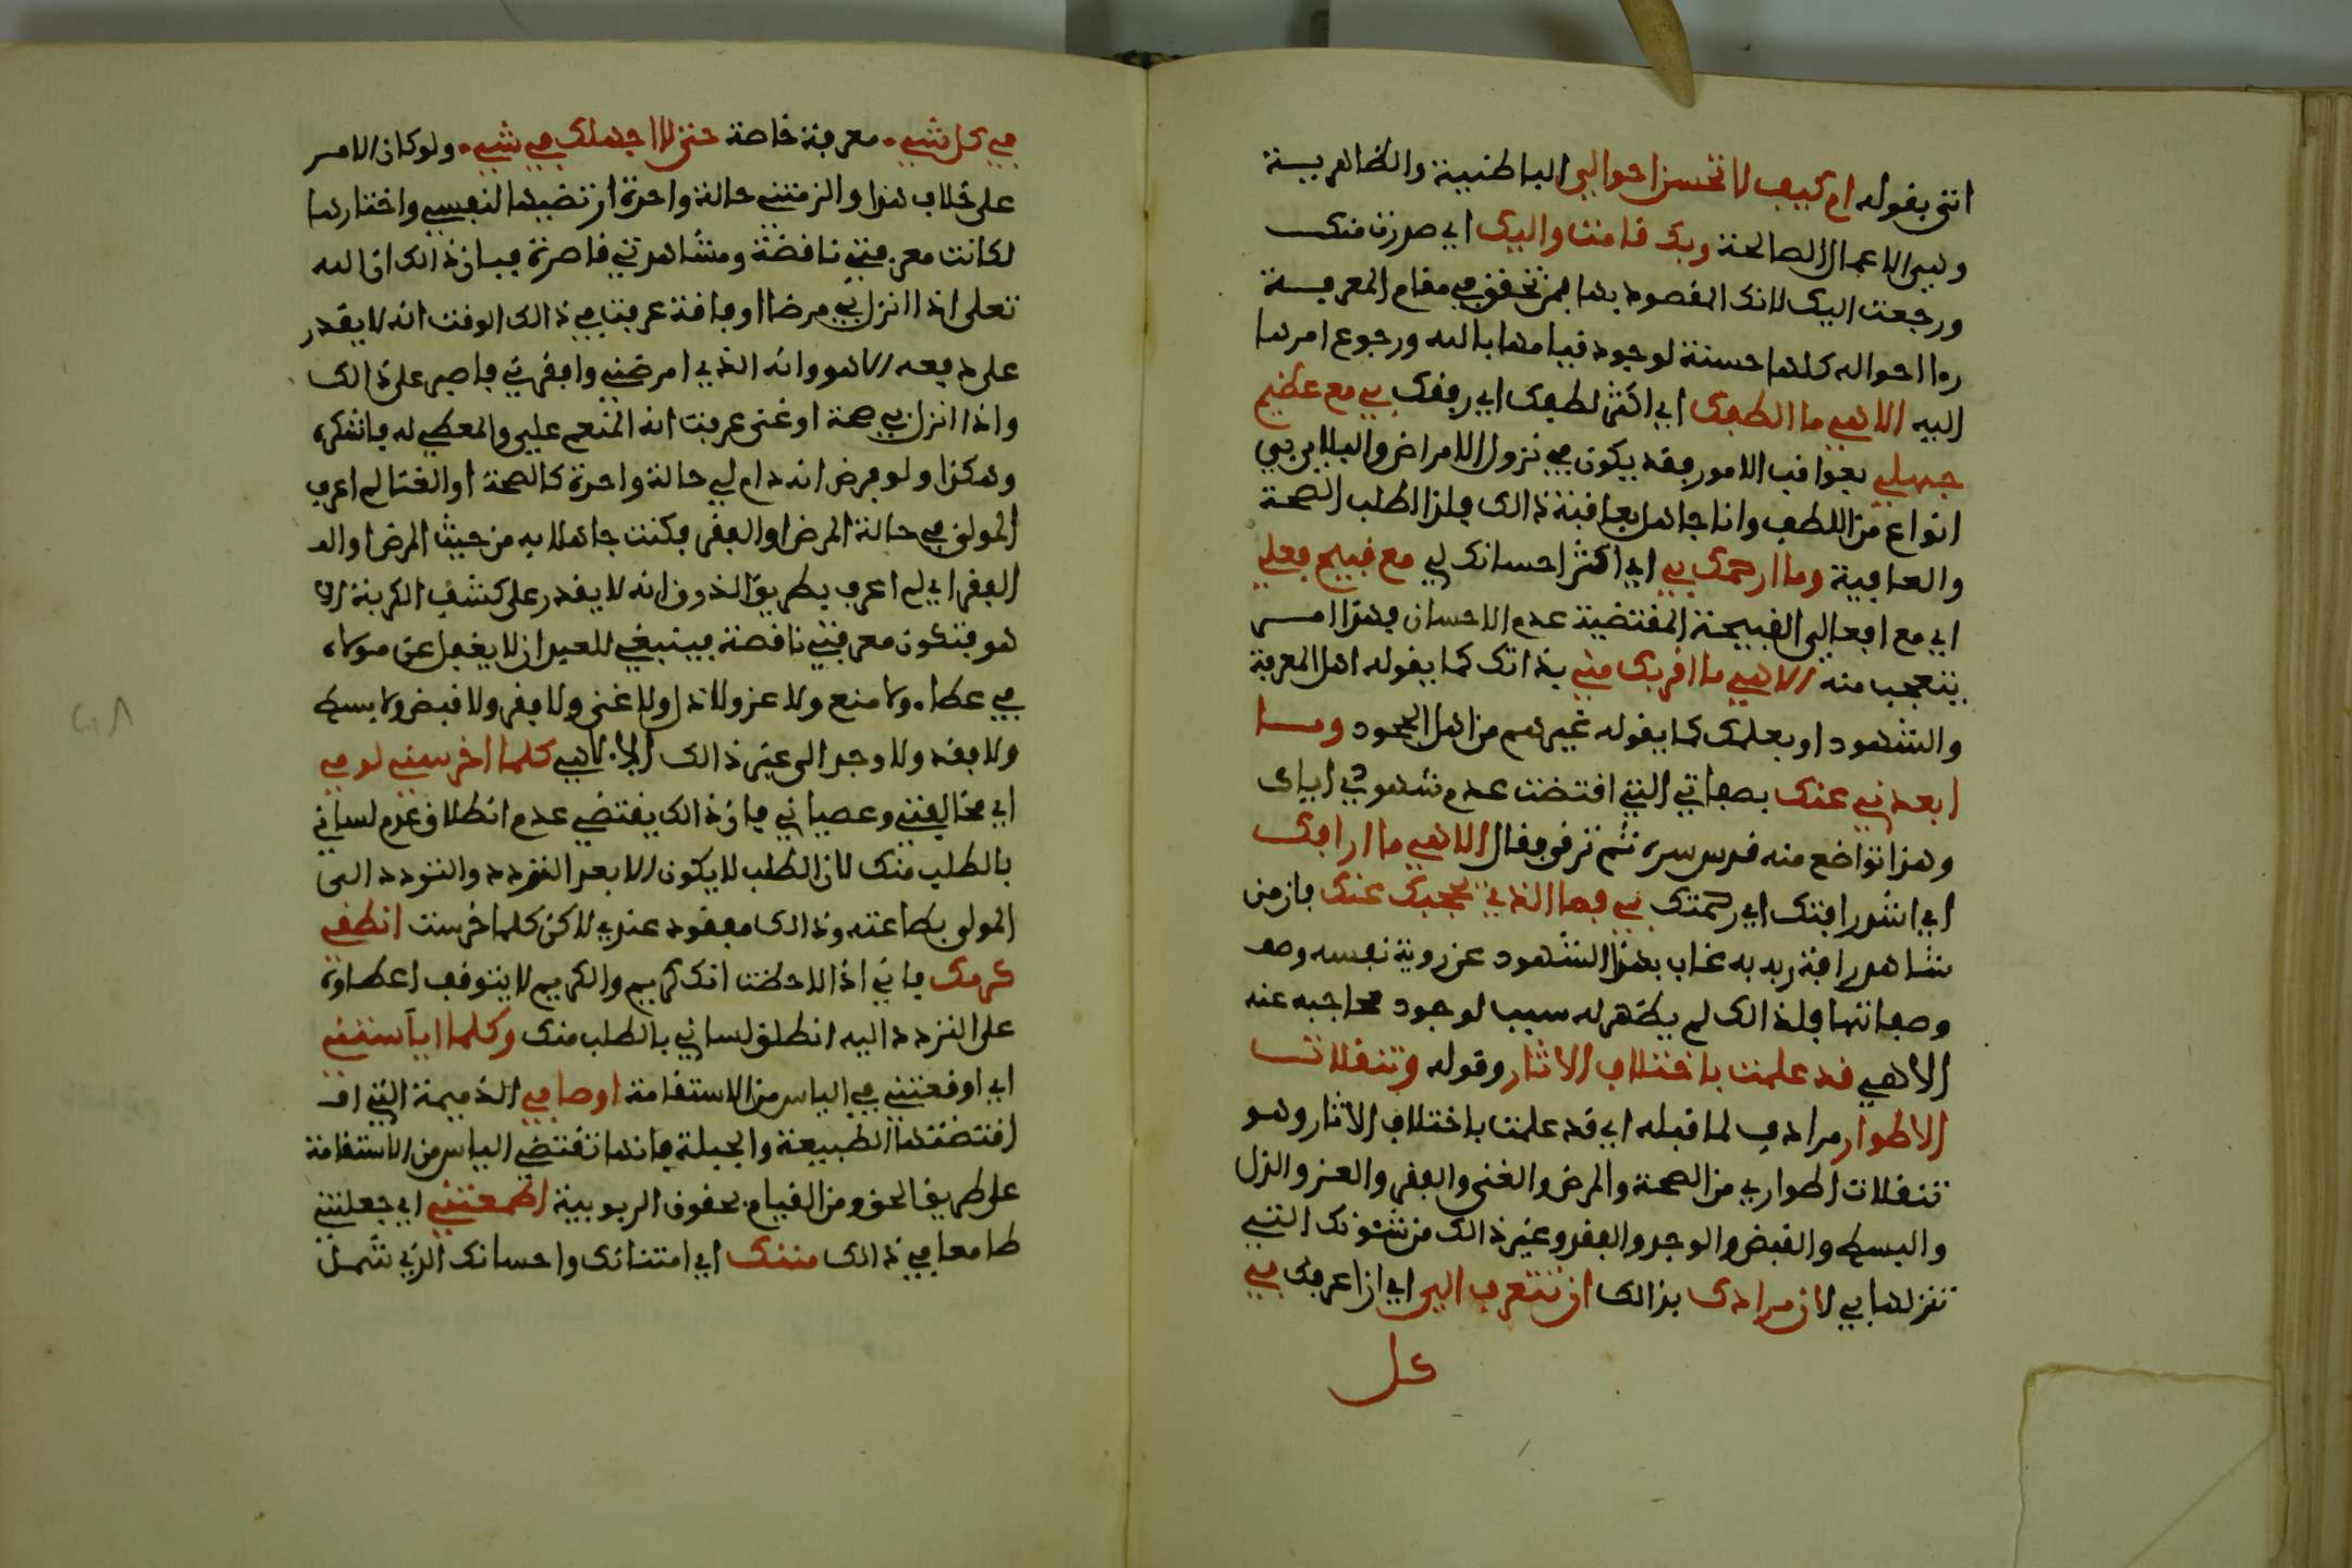 اتى بقوله ام كيف لا تحسن احوالي الباطنية والظاهرية
وهي الاعمال الصالحة وبك قامت واليك اي صدرت منك
ورجعت اليك لانك المقصود بها فمن تحقق في مقام المعرفة
رءا احواله كلها حسنة لوجود قيامها بالله ورجوع امرها
اليه الاهي ما الطفك اي اكثر لطفك اي رفقك بي مع عظيم
جهلي بعواقب الامور فقد يكون في نزول الامراض والبلايا بي
انواع من اللطف وانا جاهل بعاقبة ذالك فلذا اطلب الصحة
والعافية وما ارحمك بي اي اكثر احسانك لي مع قبيح فعلي
اي مع افعالي القبيحة المقتضية عدم الاحسان فهذا امر
يتعجب منه الاهي ما اقربك مني بذاتك كما يقوله اهل المعرفة
والشهود او بعلمك كما يقوله غيرهم من اهل الجحود وما
ابعدني عنك بصفاتي التي اقتضت عدم شهودي اياك
وهذا تواضع منه قدس سره ثم ترقى فقال الاهي ما ارافك
اي اشد رافتك اي رحمتك بي فما الذي يحجبك عنك فان من
شاهد رافة ربه به غاب بهذا الشهود عن روية نفسه وصف
وصفاتها فلذالك لم يظهر له سبب لوجود حاجبه عنه
الاهي قد علمت باختلاف الاثار وقوله وتنقلات
الاطوار مرادف لما قبله اي قد علمت باختلاف الاثار وهو
تنقلات اطواري من الصحة والمرض والغنى والفقر والعز والذل
والبسط والقبض والوجد والفقد وغير ذالك من شئونك التي
تنزلها بي ان مرادك بذالك ان تتعرف الي اي ان اعرفك في
كل
في كل شيء. معرفة خاصة حتى لا اجهلك في شيء. ولو كان الامر
على خلاف هذا والزمتني حالة واحدة ارتضيها لنفسي واختارها
لكانت معرفتي ناقصة ومشاهدتي قاصرة فبان ذالك ان الله
تعلى اذا انزل بي مرضا او فاقة عرفت في ذالك الوقت انه لا يقدر
على دفعه الا هو وانه الذي امرضني وافقرني فاصبر على ذالك
واذا انزل بي صحة او غنى عرفت انه المنعم علي والمعطي له فاشكره
وهكذا ولو فرض انه دام لي حالة واحدة كالصحة او الغنا لم اعرف
المولى في حالة المرض او الفقر فكنت جاهلا به من حيث المرض او الـ
الفقر اي لم اعرف بطريق الذوق انه لا يقدر على كشف الكربة الا
هو فتكون معرفتي ناقصة فينبغي للعبد ان لا يغفل عن مولاه
في عطاء ولا منع ولا عز ولا ذل ولا غنى ولا فقر ولا قبض ولا بسط
ولا فقد ولا وجد الى غير ذالك الاهي كلما اخرسني لومي
اي مخالفتي وعصياني فان ذالك يقتضي عدم انطلاق لساني
بالطلب منك لان الطلب لا يكون الا بعد التودد والتودد الى
المولى بطاعته وذالك مفقود عندي لاكن كلما خرست انطقني
كرمك فاني اذا لاحظت انك كريم والكريم لا يتوقف اعطاوه
على التردد اليه انطلق لساني بالطلب منك وكلما اياستني
اي اوقعتني في الياس من الاستقامة اوصافي الذميمة التي اقـ
اقتضتها الطبيعة والجبلة فانها تقتضي الياس من الاستقامة
على طريق الحق ومن القيام بحقوق الربوبية اطمعتني اي جعلتني
طامعا في ذالك مننك اي امتنانك واحسانك الذي شمل